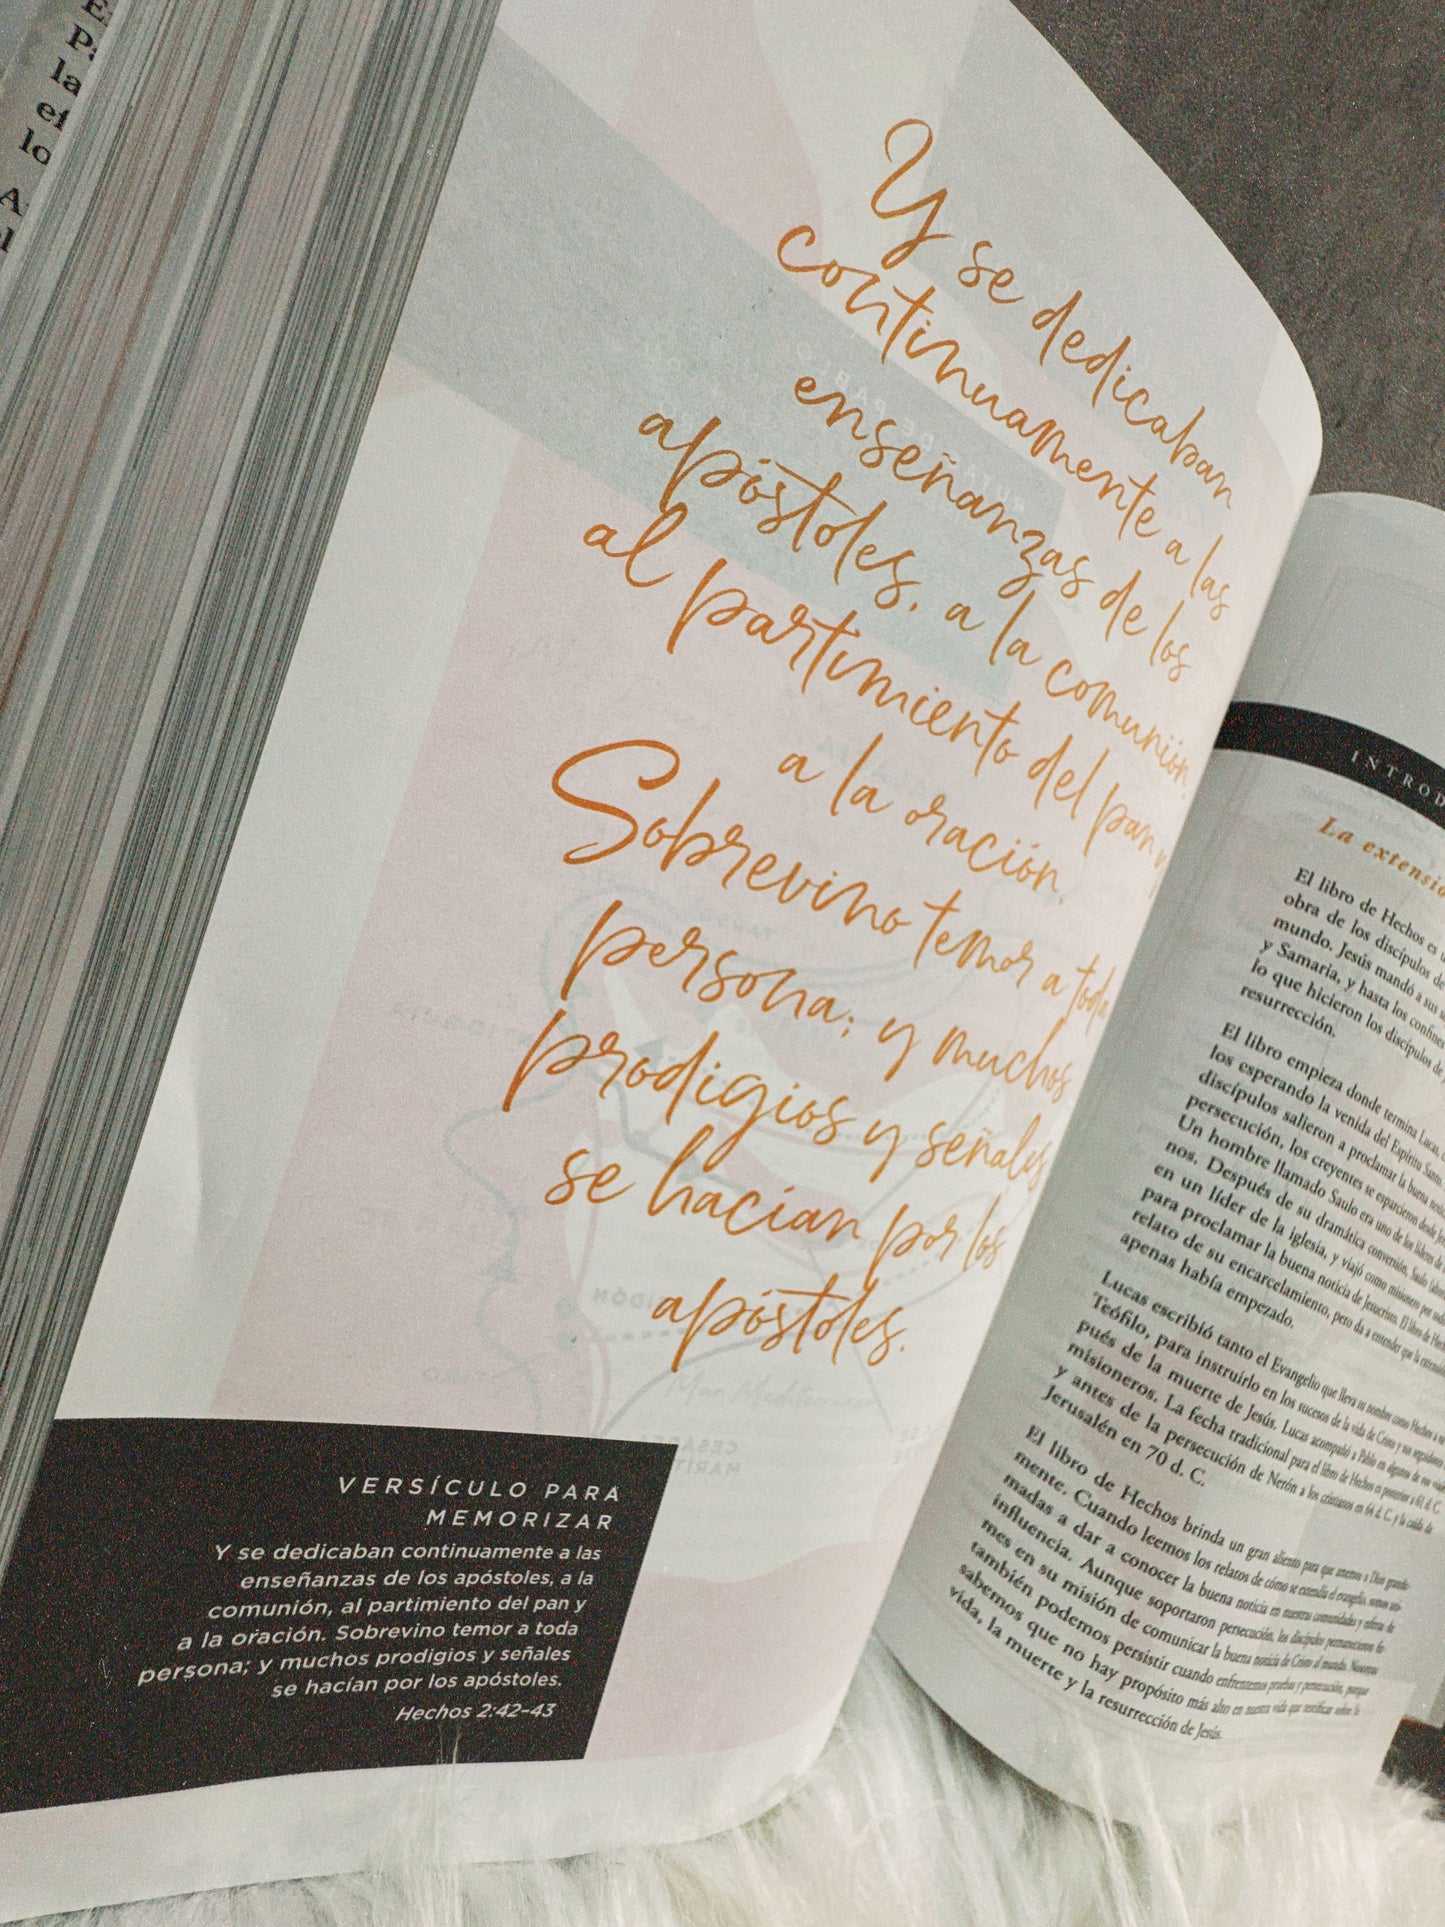 Y se dedicaban
continuamente a las
enseñanzas de los
apóstoles, a la comunión,
al partimiento del pan y
a la oración.
Sobrevino temor a toda
persona; y muchos
prodigios y señales
se hacían por los
apóstoles.
VERSÍCULO PARA
MEMORIZAR
Y se dedicaban continuamente a las
enseñanzas de los apóstoles, a la
comunión, al partimiento del pan y
a la oración. Sobrevino temor a toda
persona; y muchos prodigios y señales
se hacían por los apóstoles.
Hechos 2:42-43
La
El libro de Hechos es
obra de los discípulos de
mundo. Jesús mandó a sus
y Samaria, y hasta los confines
lo que hicieron los discípulos de
resurrección.
El libro empieza donde termina Lucas,
los esperando la venida del Espíritu Santo.
discípulos salieron a proclamar la buena
persecución, los creyentes se esparcieron desde
Un hombre llamado Saulo era uno de los líderes de
nos. Después de su dramática conversión, Saulo
en un líder de la iglesia, y viajó como misionero por
para proclamar la buena noticia de Jesucristo. El libro de
relato de su encarcelamiento, pero da a entender que la
apenas había empezado.
Lucas escribió tanto el Evangelio que lleva su nombre como Hechos a
Teófilo, para instruirlo en los sucesos de la vida de Cristo y sus seguidores
pués de la muerte de Jesús. Lucas acompañó a Pablo en algunos de sus
misioneros. La fecha tradicional para el libro de Hechos es posterior a 61 d. C.
y antes de la persecución de Nerón a los cristianos en 64 d. C. y la caída de
Jerusalén en 70 d. C.
El libro de Hechos brinda un gran aliento para que amemos a Dios
mente. Cuando leemos los relatos de cómo se extendía el evangelio, somos
madas a dar a conocer la buena noticia en nuestras comunidades y esferas de
influencia. Aunque soportaron persecución, los discípulos permanecieron
mes en su misión de comunicar la buena noticia de Cristo al mundo. Nosotras
también podemos persistir cuando enfrentemos pruebas y persecución, porque
sabemos que no hay propósito más alto en nuestra vida que testificar sobre la
vida, la muerte y la resurrección de Jesús.